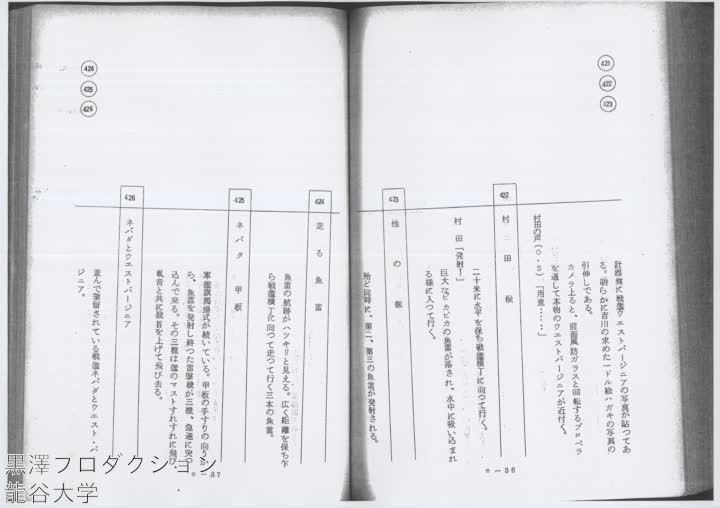 421
422
423
計器盤に戦艦ウエストバージニアの写真が貼つてあ
る。明らかに吉川の求めた一ドル絵ハガキの写真の
引伸しである。
カメラ上ると、前面風防ガラスと回転するプロペラ
を通して本物のウエストバージニアが近付く。
村田の声(O・S)「用意……」
422
村田機
二十米に水平を保ち戦艦横丁に向つて行く。
村田「発射!」
巨大なピカピカの魚雷が落され、水中に吸い込まれ
る様に入つて行く。
423
他の機
殆ど同時に、第二、第三の魚雷が発射される。
e－36
424
425
426
424
走る魚雷
魚雷の航跡がハツキリと見える。広く距離を保ち乍
ら戦艦横丁に向つて走つて行く三本の魚雷。
425
ネバタ 甲板
軍艦旗掲揚式が続いている。甲板の手すりの向うか
ら、魚雷を発射し終つた雷撃機が三機、急速に突つ
込んで来る。その三機は艦のマストすれすれに飛び、
轟音と共に機首を上げて飛び去る。
426
ネバダとウエストバージニア
並んで繋留されている戦艦ネバダとウエスト・バー
ジニア。
e－37
黒澤プロダクション
龍谷大学